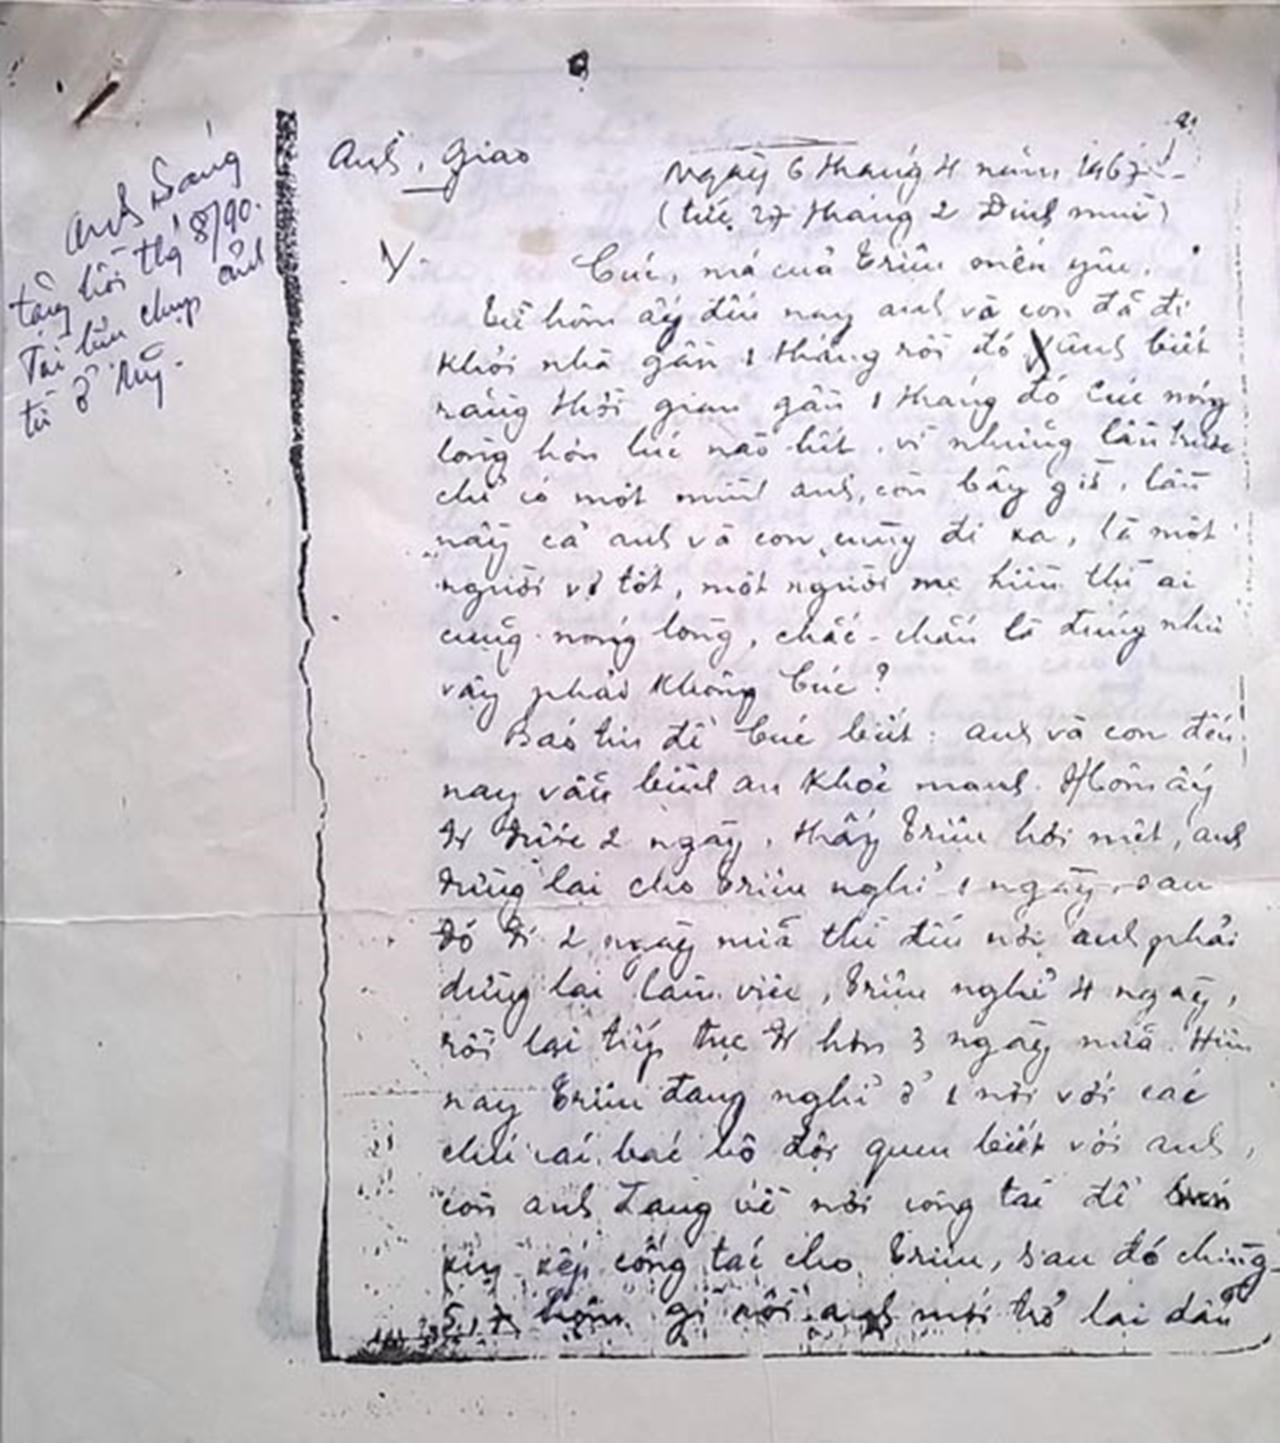 Anh Sáng
tặng hồi thg 8/90.
Tài liệu chụp ảnh
từ ở Mỹ.
Anh, Giao
Ngày 6 tháng 4 năm 1967
(tức 27 tháng 2 Đinh mùi)
Cúc, má của Triều mến yêu.
Từ hôm ấy đến nay anh và con đã đi
khỏi nhà gần 1 tháng rồi đó, anh biết
rằng thời gian gần 1 tháng đó Cúc nóng
lòng hơn lúc nào hết. vì những lần trước
chỉ có một mình anh, còn bây giờ, lần
nầy cả anh và con cùng đi xa, là một
người vợ tốt, một người mẹ hiền thì ai
cũng nóng lòng, chắc-chắn là đúng như
vậy phải không Cúc?
Báo tin để Cúc biết: anh và con đến
nay vẫn bình an khỏe mạnh. Hôm ấy
đi được 2 ngày, thấy Triều hơi mệt, anh
dừng lại cho Triều nghỉ 1 ngày, sau
đó đi 2 ngày nữa thì đến nơi anh phải
dừng lại làm việc, Triều nghỉ 4 ngày,
rồi lại tiếp tục đi hơn 3 ngày nữa. Hiện
nay Triều đang nghỉ ở 1 nơi với các
chú các bác bộ đội quen biết với anh,
còn anh đang về nơi công tác để
xin xếp công tác cho Triều, sau đó chừng
5, 7 hôm gì rồi anh mới trở lại dẫn